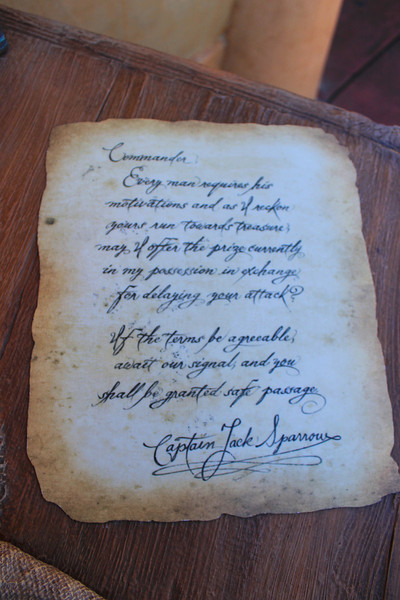 Commander,
Every man requires his
motivations and as I reckon
yours run towards treasure,
may I offer the prize currently
in my possession in exchange
for delaying your attack?
If the terms be agreeable,
await our signal, and you
shall be granted safe passage.
Captain Jack Sparrow